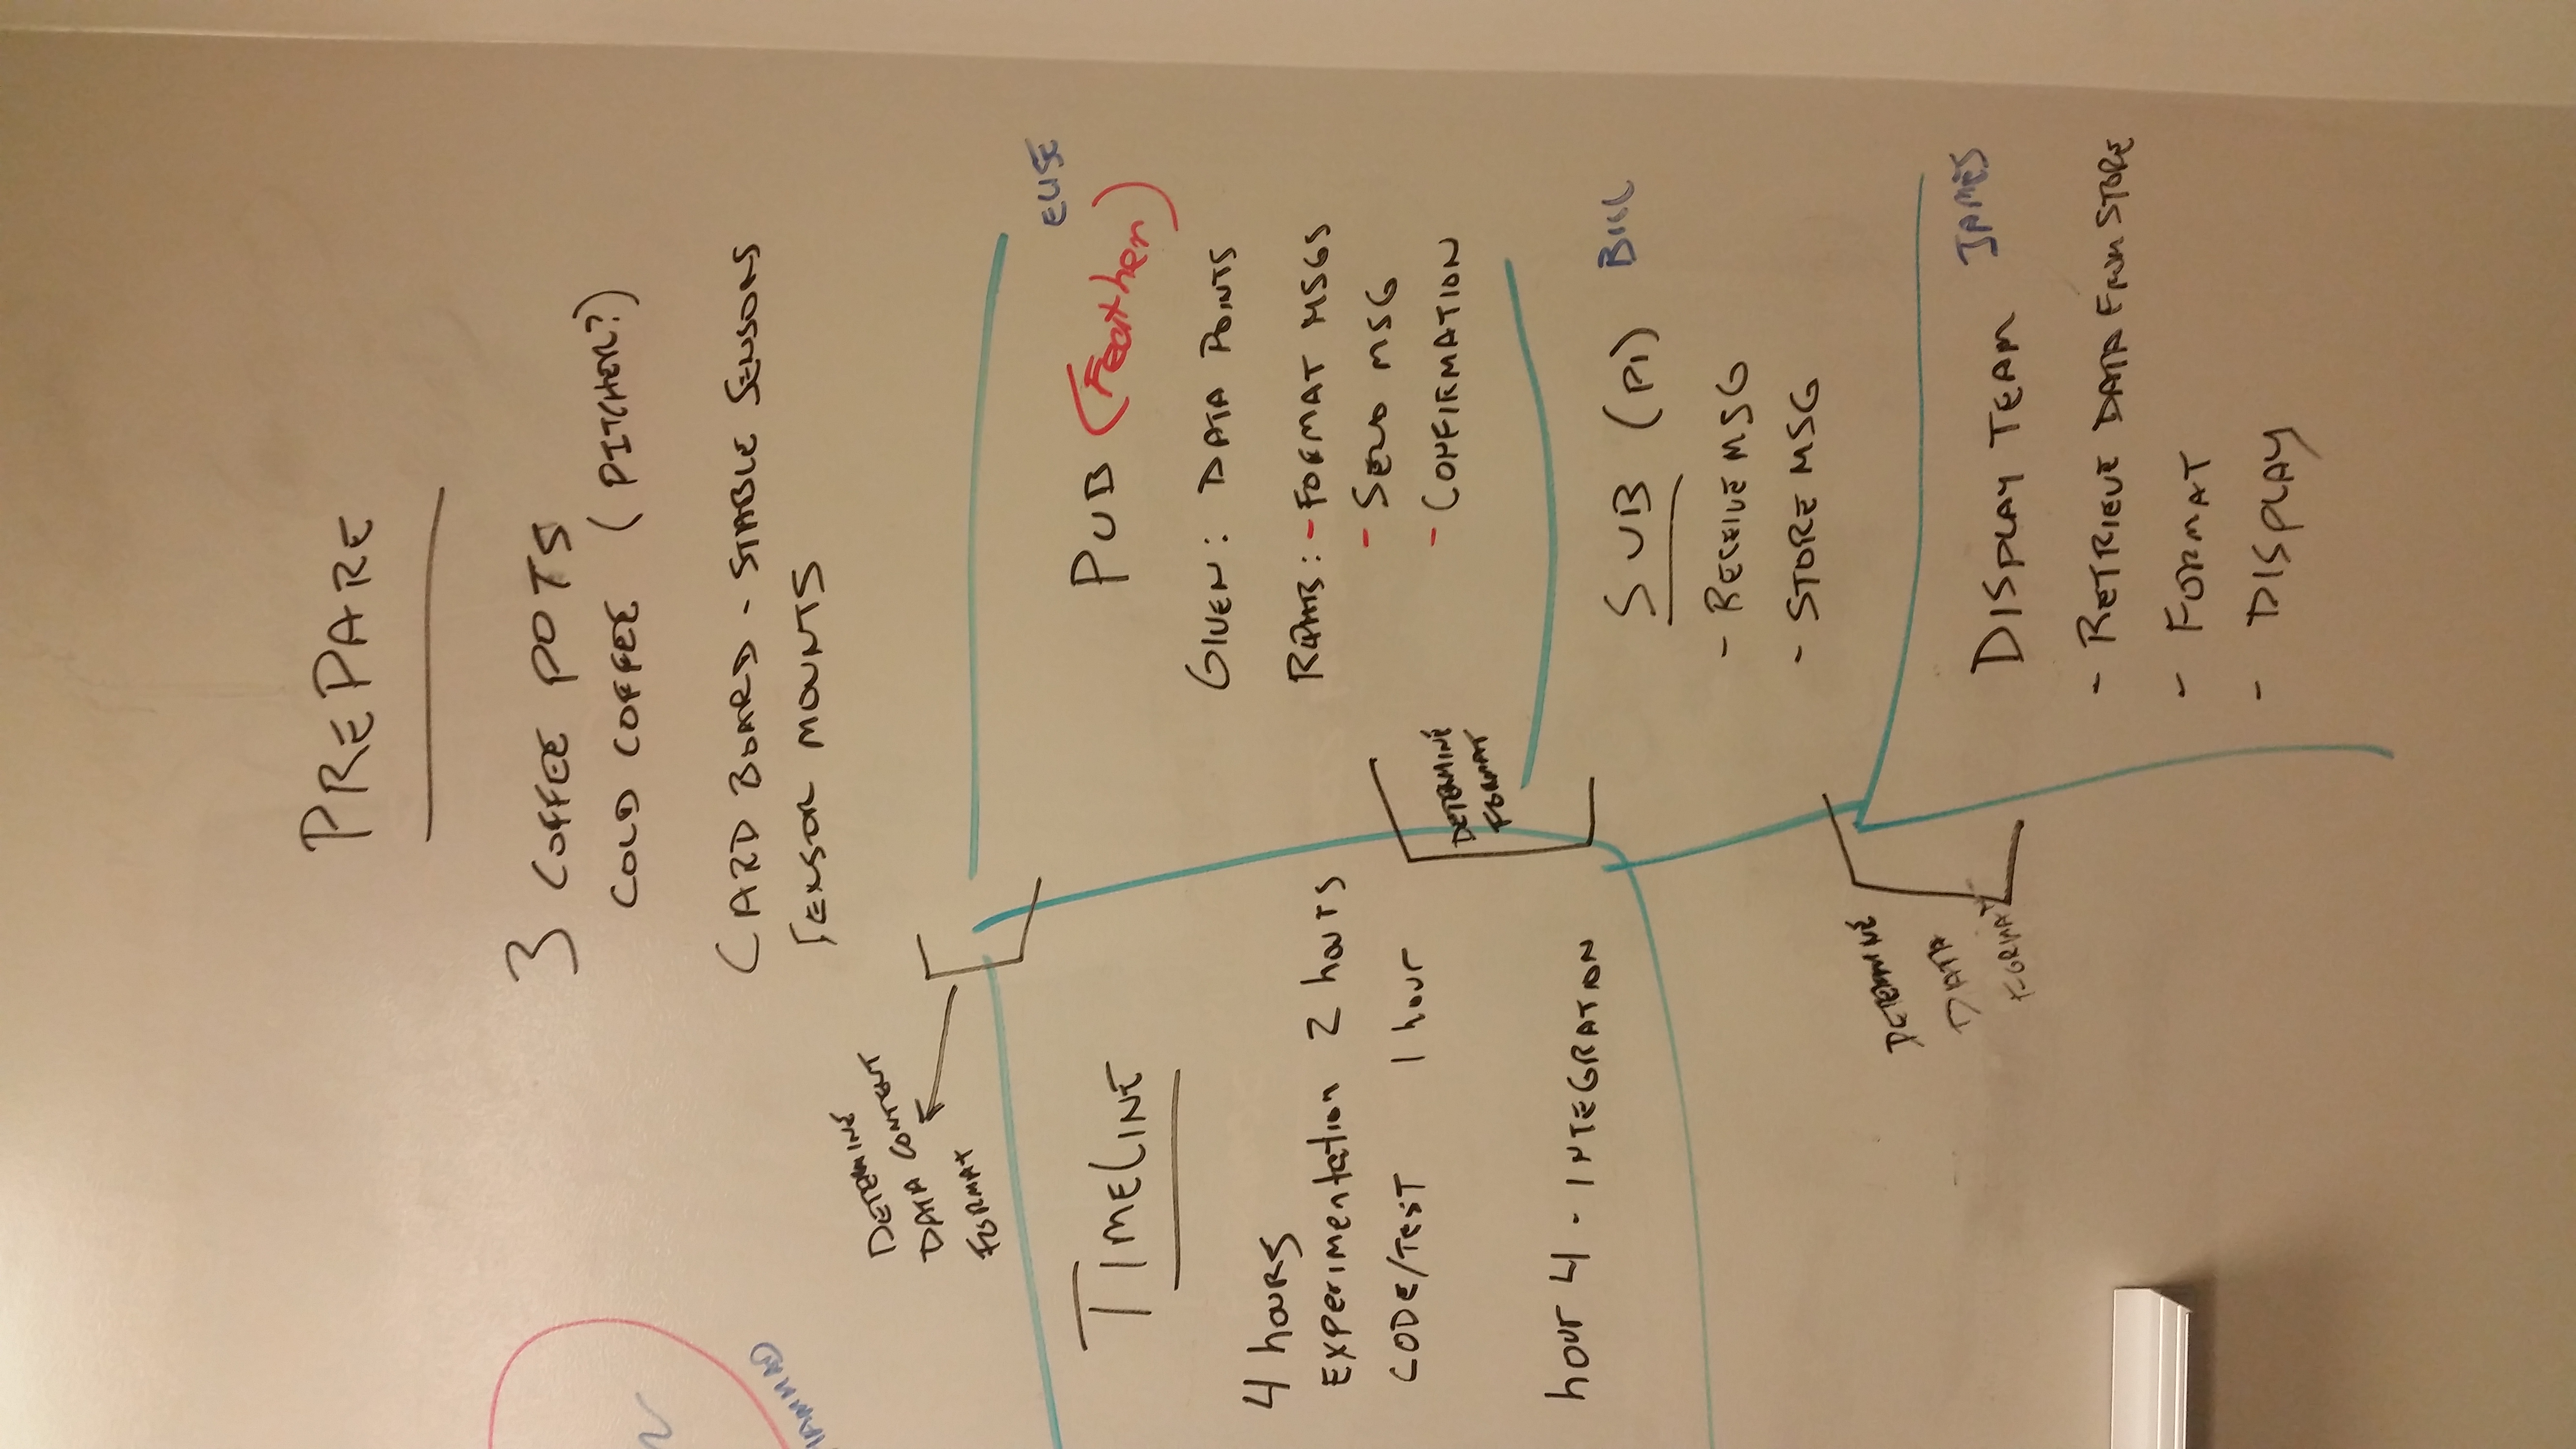 PREPARE
3 COFFEE POTS
COLD COFFEE (PITCHER?)
CARD BOARD - STABLE SENSORS
SENSOR MOUNTS
DETERMINE
DATA CONTENT
FORMAT
TIMELINE
4 hours
Experimentation 2 hours
CODE/TEST 1 hour
hour 4 - INTEGRATION
ELISE
PUB (Feather)
GIVEN: DATA POINTS
- FORMAT MSGS
- SEND MSG
- CONFIRMATION
DETERMINE
FORMAT
SUB (PI) BILL
- RECEIVE MSG
- STORE MSG
DETERMINE
DATA
FORMAT
DISPLAY TEAM JAMES
- RETRIEVE DATA FROM STORE
- FORMAT
- DISPLAY